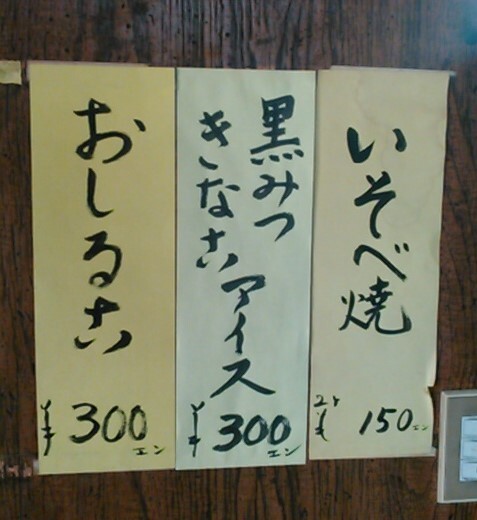 いそべ焼
2ケ
¥150エン
黒みつ
きなこ
アイス
¥300エン
おしるこ
¥300エン